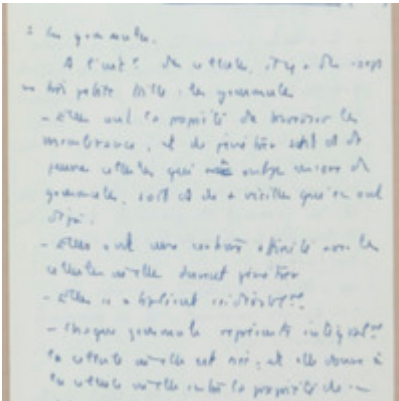 : les gemmules.
A l'int! de cellule, il y a des corps
très petite taille : les gemmules
- Elles ont la propriété de traverser les
membranes, et de pénétrer soit ds de
jeunes cellules qui encore de
gemmules, soit ds de + vieilles qui en ont
déjà.
- Elles ont une certaine affinité avec les
cellules où elles doivent pénétrer
- Elles se
- Chaque gemmule représente intégral!
la cellule où elle est née, et elle donne à
la cellule où elle entre la propriété de